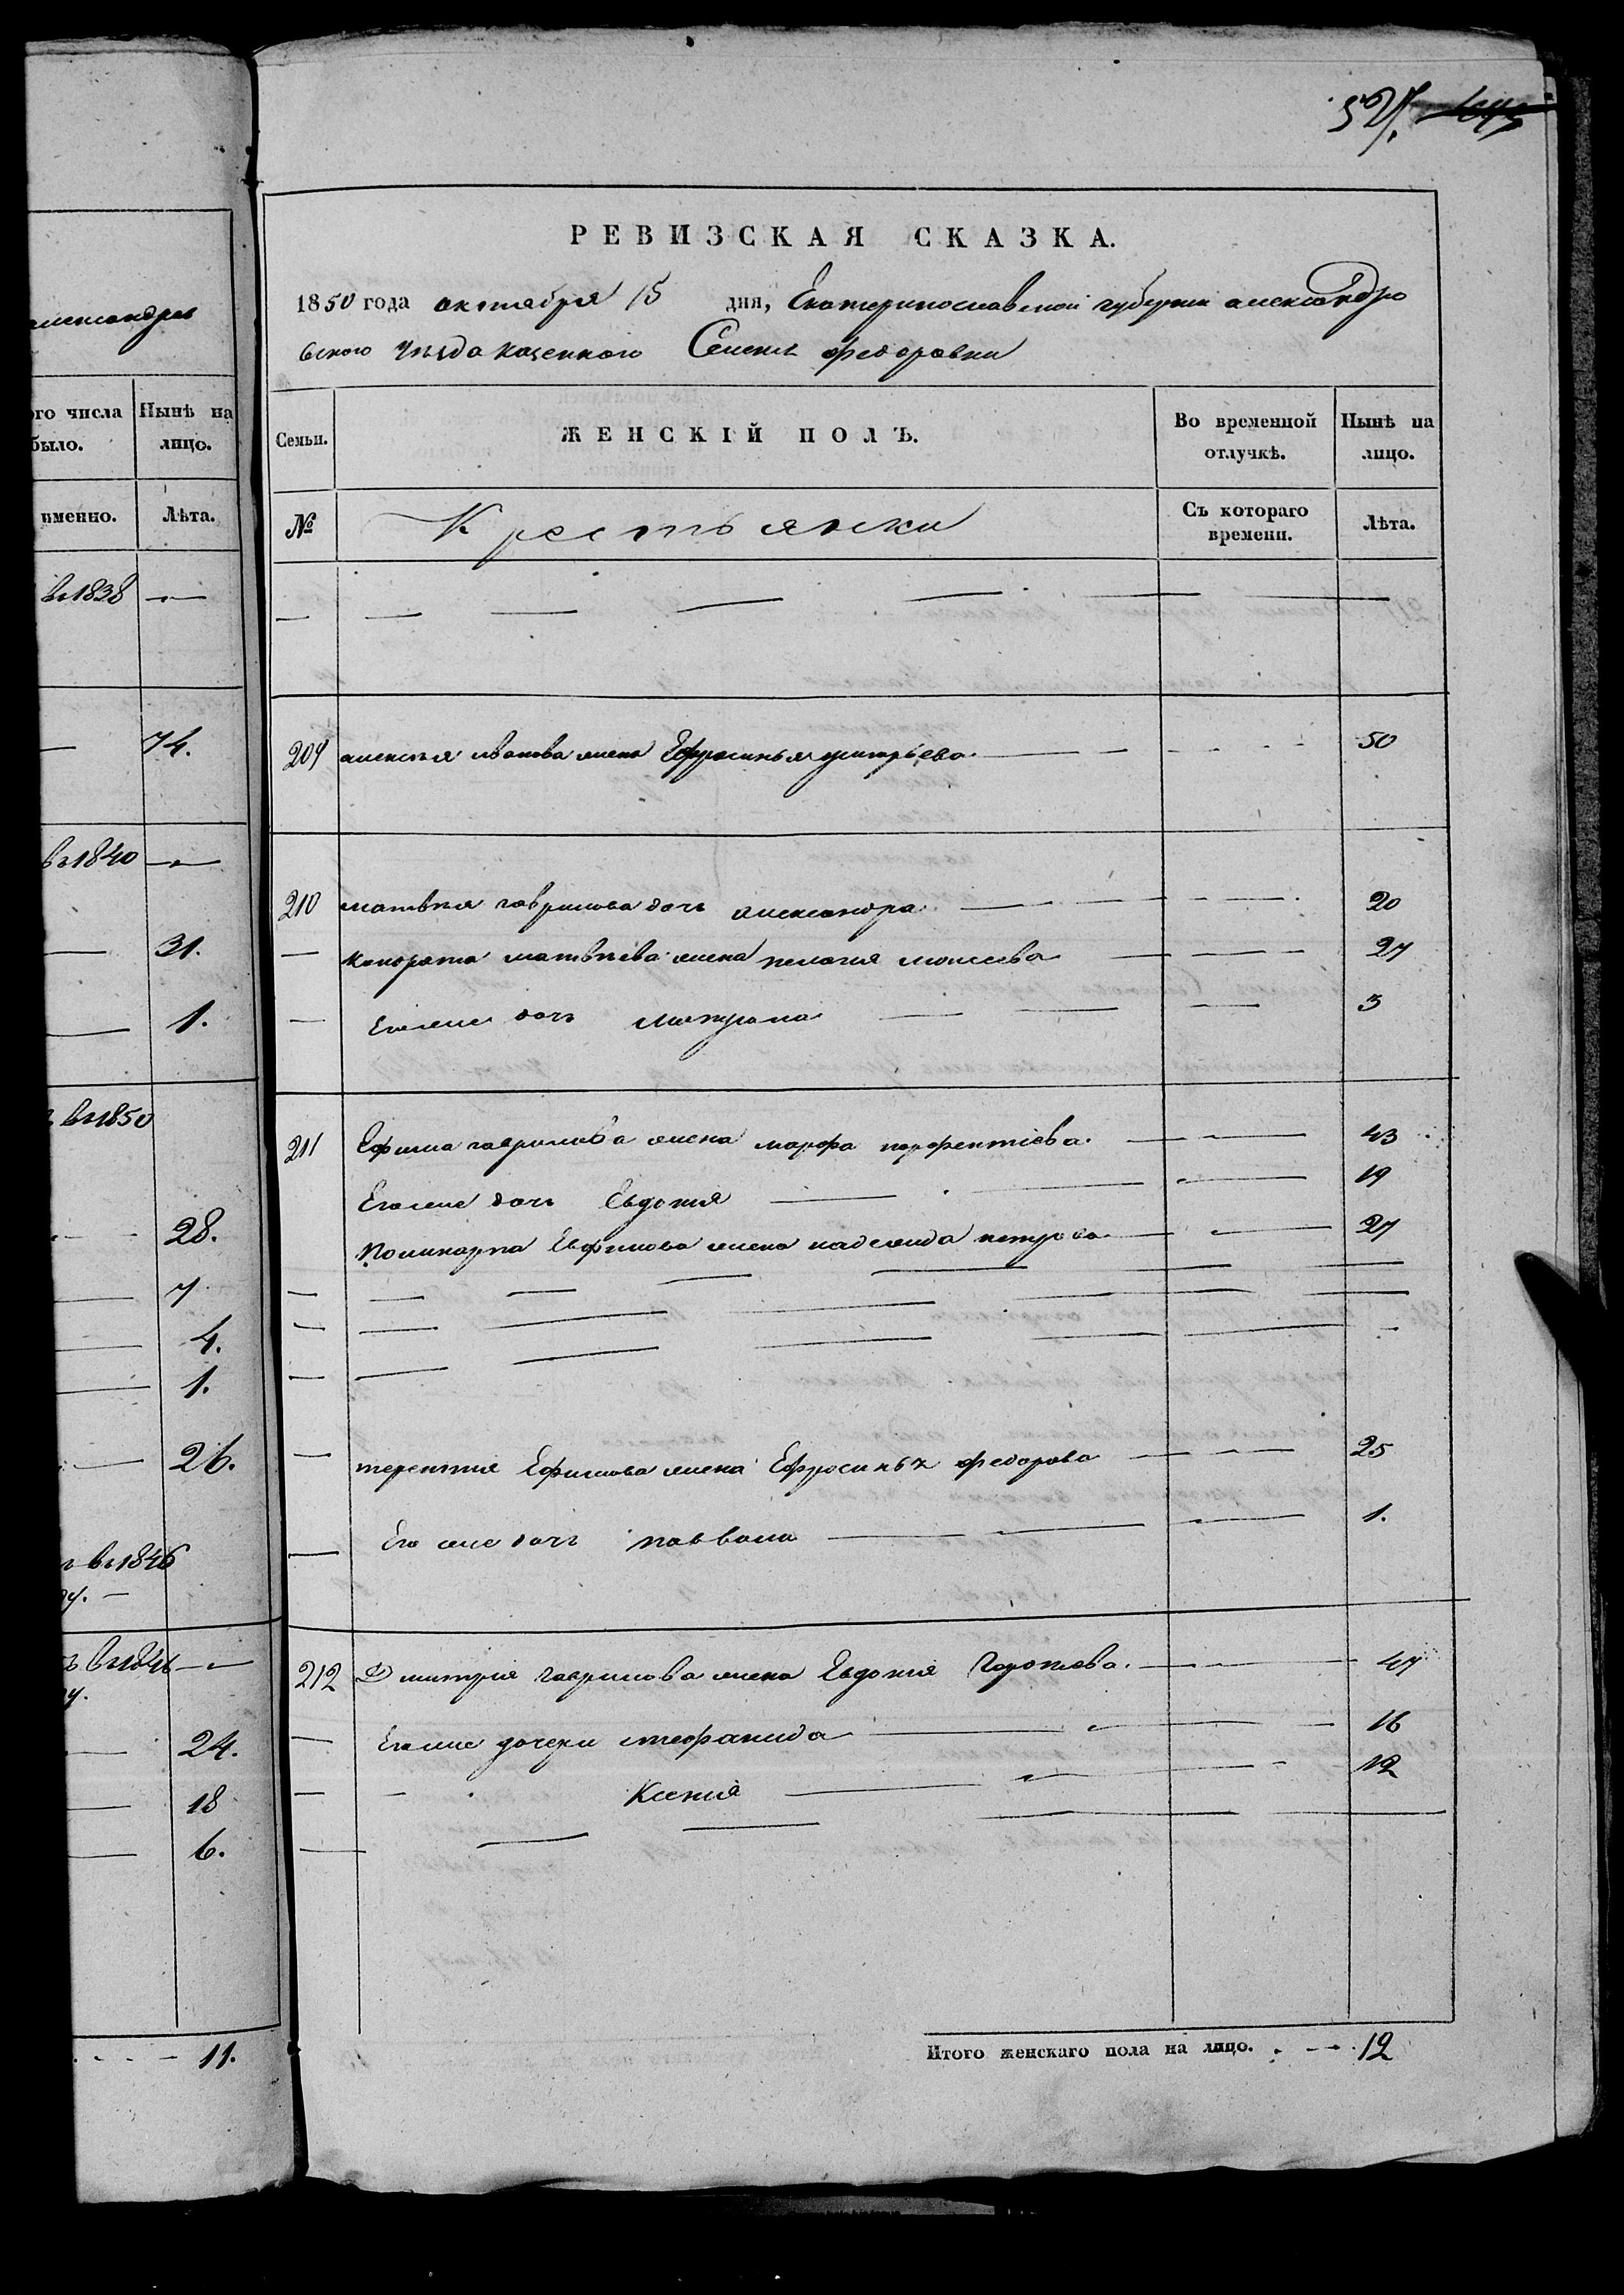 александров
ого числа Нынѣ на
было. лицо.
именно. Лѣта.
въ 1838 —
74.
въ 1840 —
31.
1.
въ 1850
28.
7
4.
1.
26.
въ 1846
ду. —
въ 1846 —
24.
18
6.
11.
527.
РЕВИЗСКАЯ СКАЗКА.
1850 года октября 15 дня, Екатеринославской губерніи александро
вского уѣзда казенного Селенія федоровки
Семьи. ЖЕНСКІЙ ПОЛЪ. Во временной отлучкѣ. Нынѣ на лицо.
№ Крестьянки Съ котораго времени. Лѣта.
209 алексея иванова жена Ефросинья дмитрьева 50
210 матвея гаврилова дочь александра 20
— кондрата матвѣева жена пелагия моисеева 27
— Его же дочь матрона 3
211 Ефима гаврилова жена марфа парфентіева 43
Его же дочь Евдокия 19
Поликарпа Евфимова жена надежда петрова 27
— терентия Ефимова жена Ефросинья федорова 25
— Его же дочь павлина 1.
212 Дмитрия гаврилова жена Евдокия 47
— Его же дочери стефанида 16
— Ксения 12
Итого женскаго пола на лицо. 12